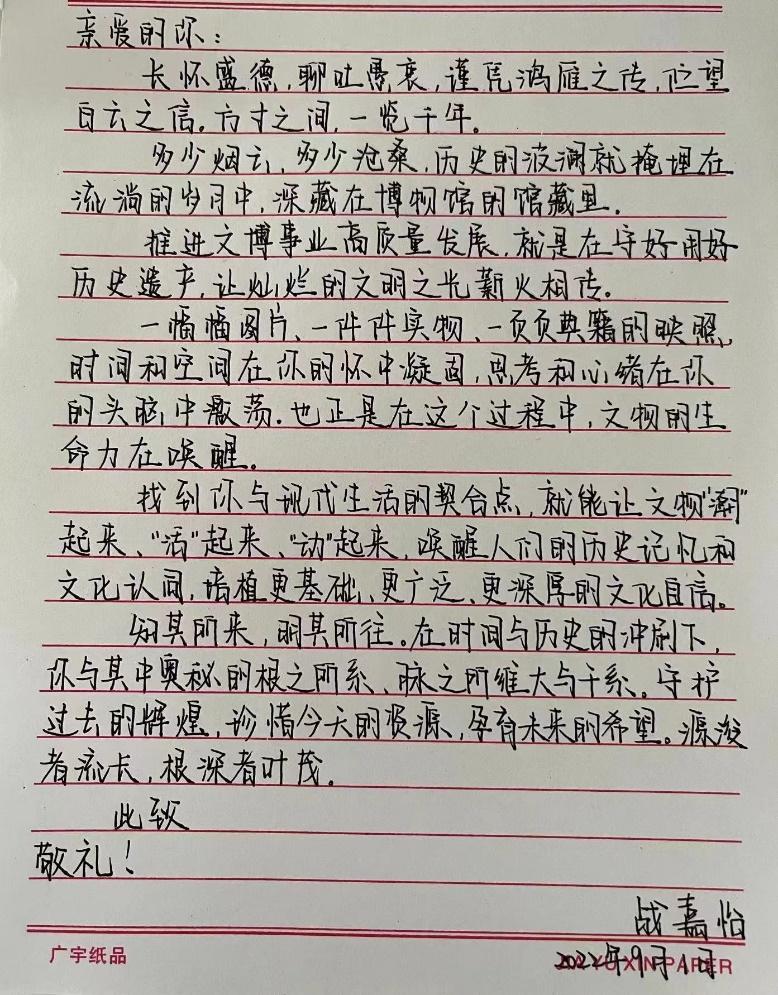 亲爱的你：
长怀盛德，聊吐愚衷，谨凭鸿雁之传，伫望
白云之信。方寸之间，一览千年。
多少烟云，多少沧桑，历史的波澜就掩埋在
流淌的岁月中，深藏在博物馆的馆藏里。
推进文博事业高质量发展，就是在守好用好
历史遗产，让灿烂的文明之光薪火相传。
一幅幅图片、一件件实物、一页页典籍的映照，
时间和空间在你的怀中凝固，思考和心绪在你
的头脑中激荡。也正是在这个过程中，文物的生
命力在唤醒。
找到你与现代生活的契合点，就能让文物“潮”
起来、“活”起来、“动”起来，唤醒人们的历史记忆和
文化认同，培植更基础、更广泛、更深厚的文化自信。
知其所来，明其所往。在时间与历史的冲刷下，
你与其中奥秘的根之所系、脉之所维大与干系。守护
过去的辉煌，珍惜今天的资源，孕育未来的希望。源浚
者流长，根深者叶茂。
此致
敬礼！
战嘉怡
2022年9月1日
广宇纸品
XIN PAPER